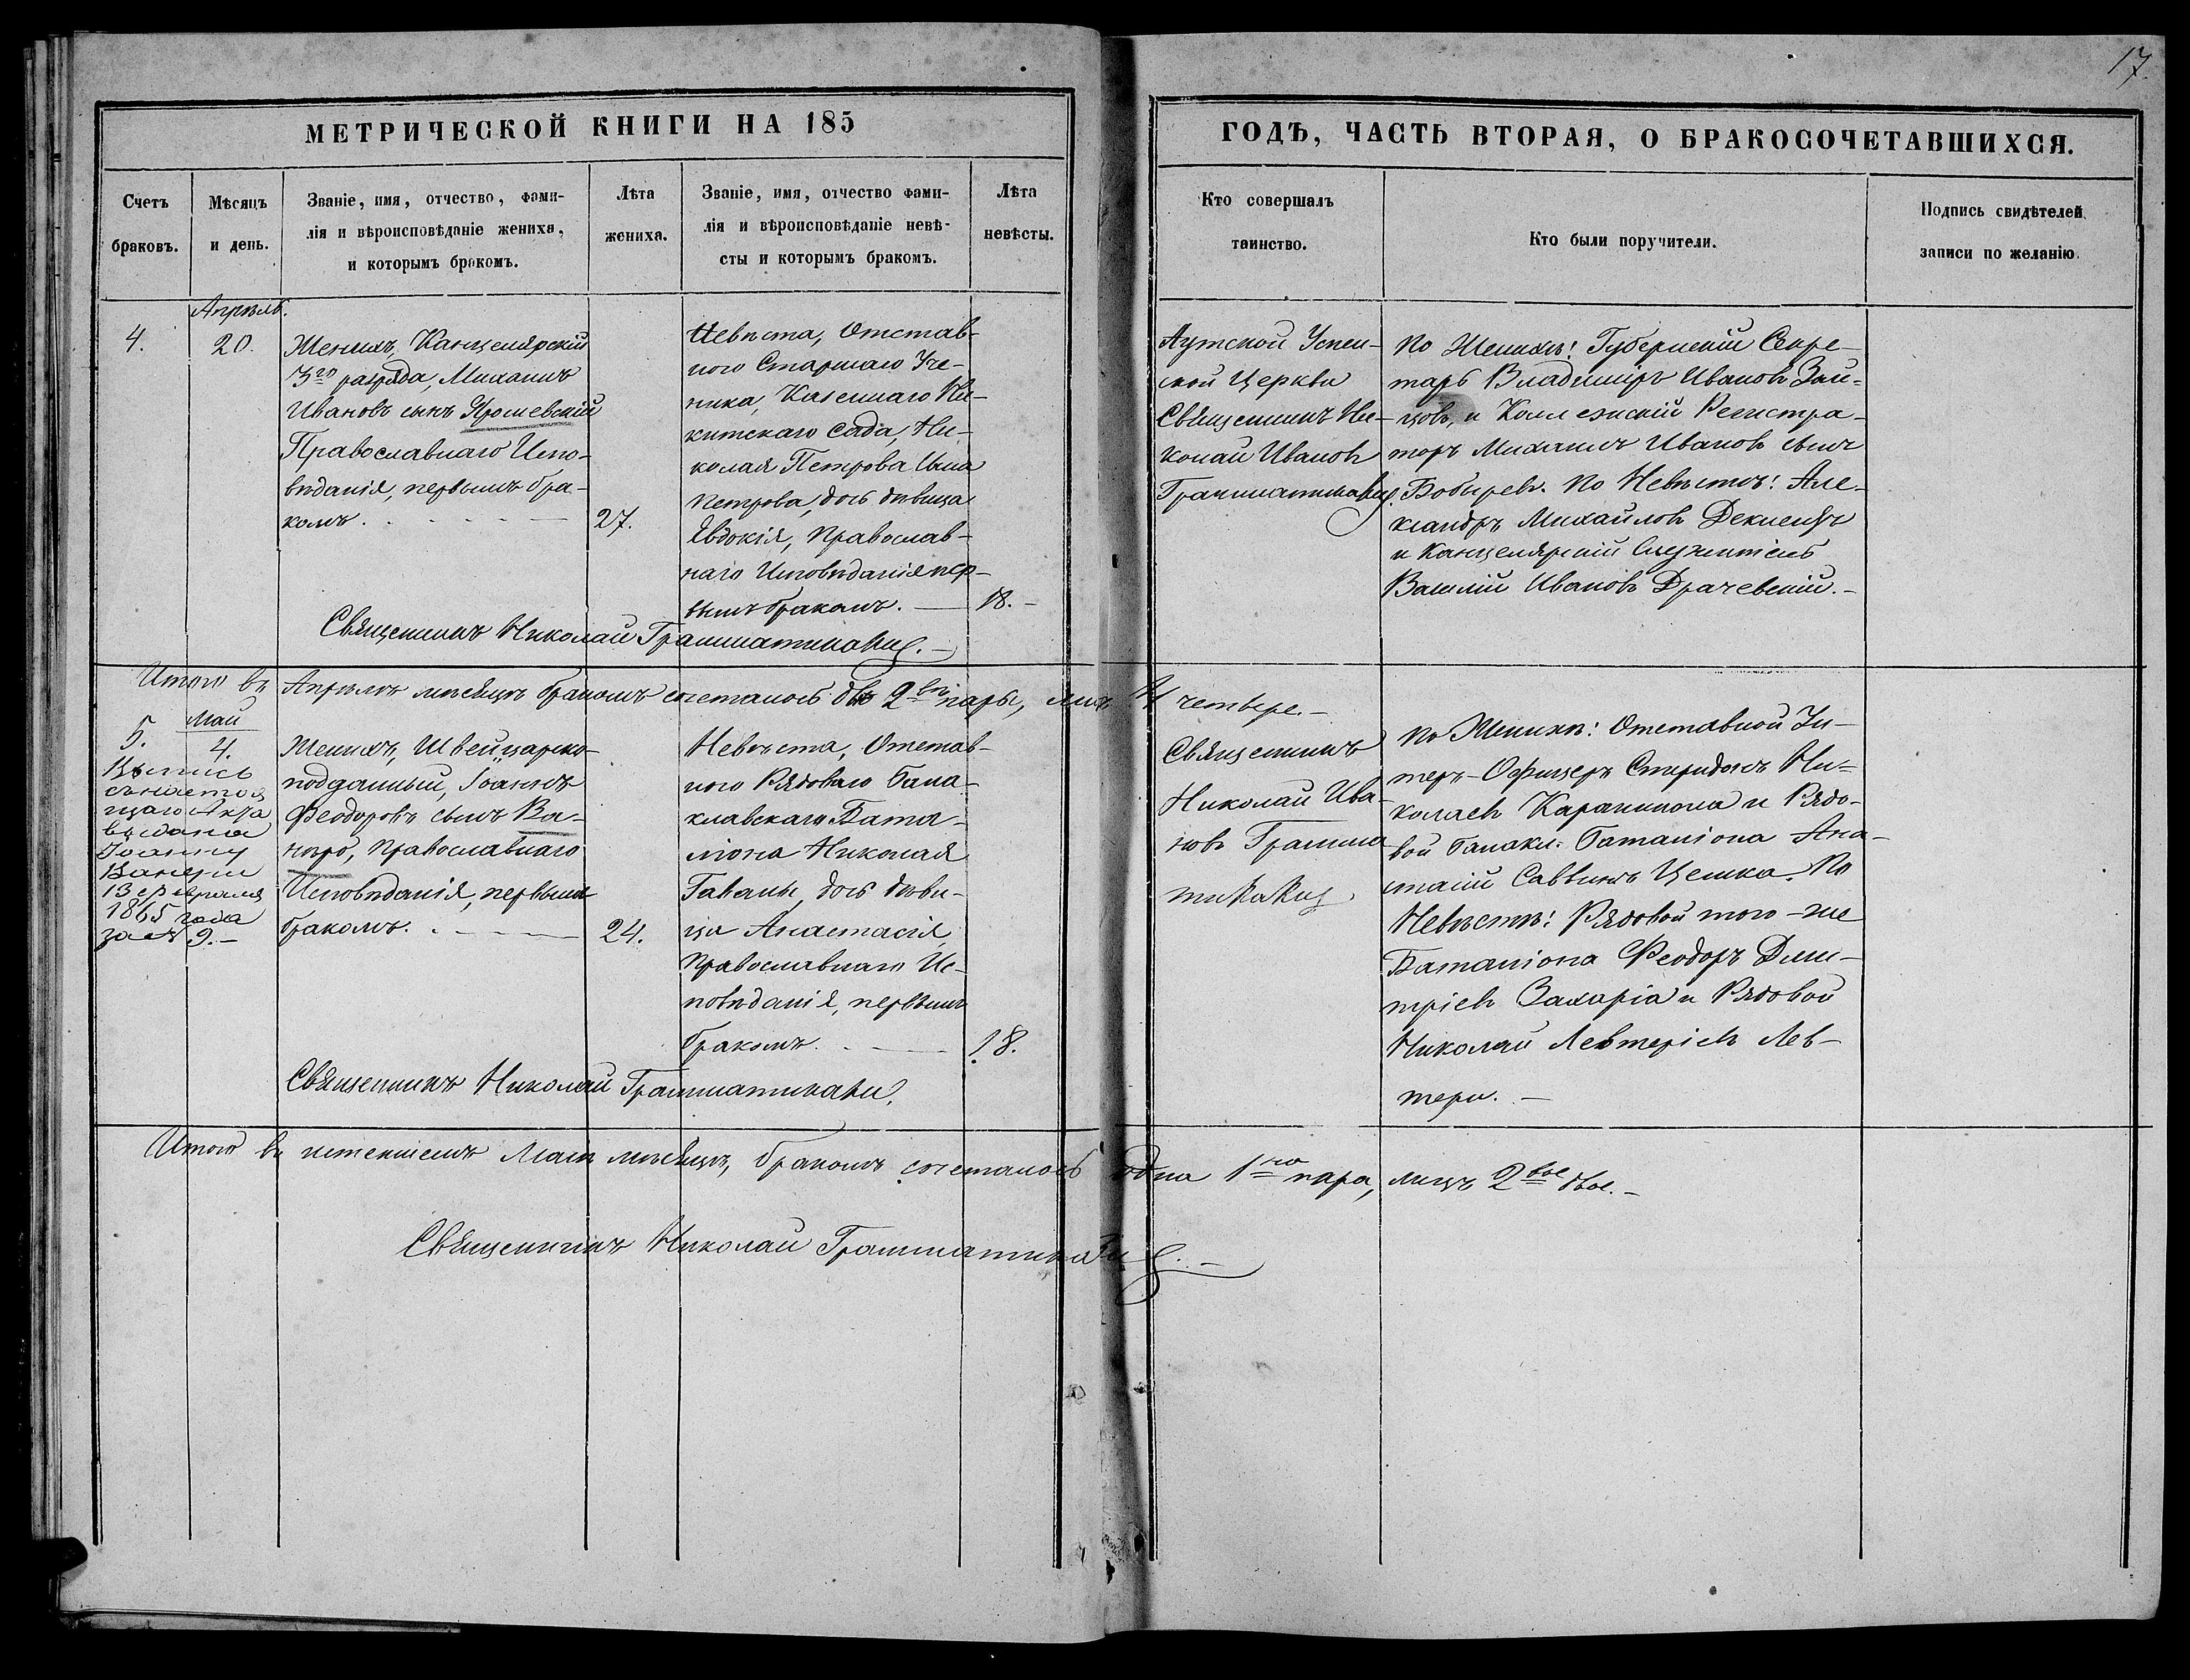 17.
МЕТРИЧЕСКОЙ КНИГИ НА 185
ГОДЪ, ЧАСТЬ ВТОРАЯ, О БРАКОСОЧЕТАВШИХСЯ.
Счетъ
браковъ.
Мѣсяцъ
и день.
Званіе, имя, отчество, фами-
лія и вѣроисповѣданіе жениха,
и которымъ бракомъ.
Лѣта
жениха.
Званіе, имя, отчество фами-
лія и вѣроисповѣданіе невѣ-
сты и которымъ бракомъ.
Лѣта
невѣсты.
Кто совершалъ
таинство.
Кто были поручители.
Подпись свидѣтелей
записи по желанію.
4.
Апрѣль.
20.
Женихъ, Канцелярскій
3го разряда, Михаилъ
Ивановъ сынъ Ярошевскій
Православнаго Испо-
вѣданія, первымъ бра-
комъ.
27.
Невѣста, Отстав-
ного Старшаго Уче-
ника, Казеннаго Ни-
китскаго Сада, Ни-
колая Петрова сына
Петрова, дочь дѣвица
Евдокія, Православ-
наго Исповѣданія пер-
вымъ бракомъ.
18.
Аутской Успен-
ской Церкви
Священникъ Ни-
колай Ивановъ
Грамматикаки
По Женихѣ: Губернскій Секре-
тарь Владиміръ Ивановъ Зай-
цовъ, и Коллежскій Регистра-
торъ Михаилъ Ивановъ сынъ
Бобыревъ. По Невѣстѣ: Але-
ксандръ Михайловъ
и Канцелярскій Служитель
Василій Ивановъ Драчевскій.
Священникъ Николай Грамматикаки.
Итого въ Апрѣлѣ мѣсяцѣ бракомъ сочеталось двѣ 2вѣ пары, лицъ 4 четверо.
5.
Май
4.
Выпись
съ настоя
щаго Акта
выдана
Іоанну
Ванеръи
13 февраля
1865 года
за № 9.
Женихъ, Швейцарско-
подданный, Іоаннъ
Феодоровъ сынъ Ва-
неро, Православнаго
Исповѣданія, первымъ
бракомъ.
24.
Невѣста, Отстав-
ного Рядоваго Бала-
клавскаго Батал-
ліона Николая
Гавалы, дочь дѣви-
ца Анастасія,
Православнаго Ис-
повѣданія, первымъ
бракомъ.
18.
Священникъ
Николай Ива-
новъ Грамма-
тикаки
По Женихѣ: Отставной Ун-
теръ-Офицеръ Спиридонъ Ни-
колаевъ и Рядо-
вой Балакл. Баталіона Ана-
стасій Саввинъ Цешка. По
Невѣстѣ: Рядовой того-же
Баталіона Феодоръ Дми-
тріевъ Захаріа и Рядовой
Николай Левтеріевъ Лев-
тери.
Священникъ Николай Грамматикаки.
Итого въ истекшемъ Маѣ мѣсяцѣ, бракомъ сочеталось одна 1на пара, лицъ 2вое двое.
Священникъ Николай Грамматикаки.